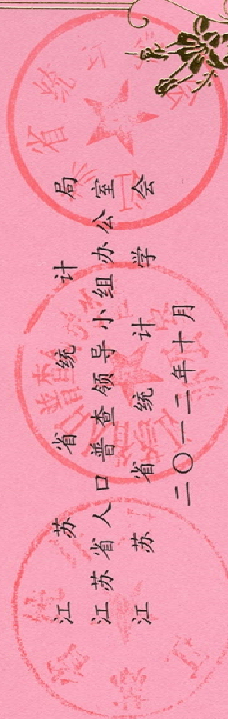 江苏省统计局
江苏省人口普查领导小组办公室
江苏省统计学会
二〇一二年十月